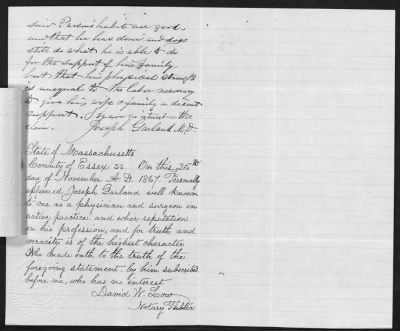 said Parsons habits are good,
and that he has done and does
still do what he is able to do
for the support of his family
but that his physical strength
is unequal to the labor necessary
to give his wife & family a decent
support.
claim. Joseph Garland M.D.
State of Massachusetts
County of Essex SS. On this 25th
day of November A.D. 1867 Personally
appeared Joseph Garland well known
to me as a physician and surgeon in
active practice and whose reputation
in his profession, and for truth and
veracity is of the highest character
Who made oath to the truth of the
foregoing statement by him subscribed
before me, who has no interest
David W. Low
Notary Public